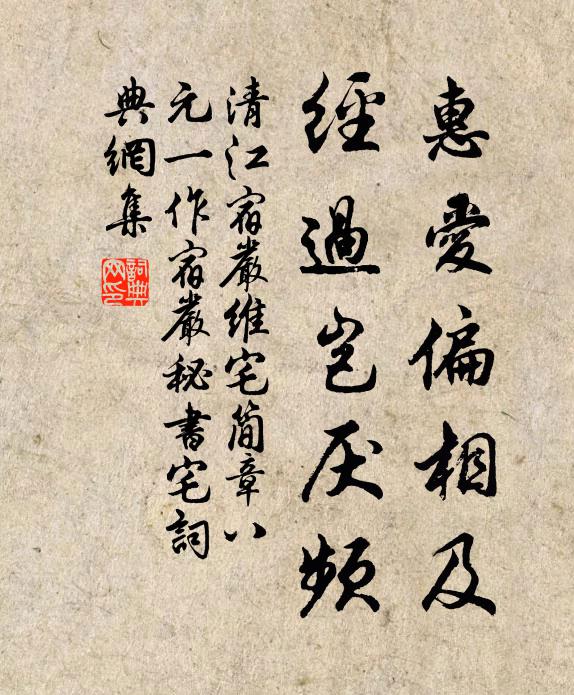 惠愛偏相及
經過豈厌頻
清江宿嚴維宅簡章八
元一作宿嚴秘書宅詞
典網集
詞典網印